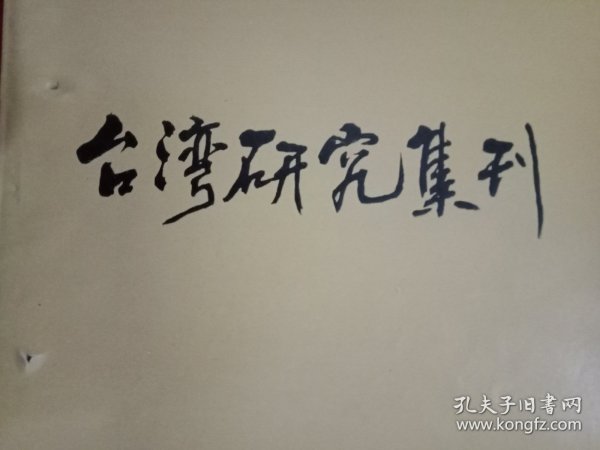 台湾研究集刊
孔夫子旧書网
www.kongfz.com